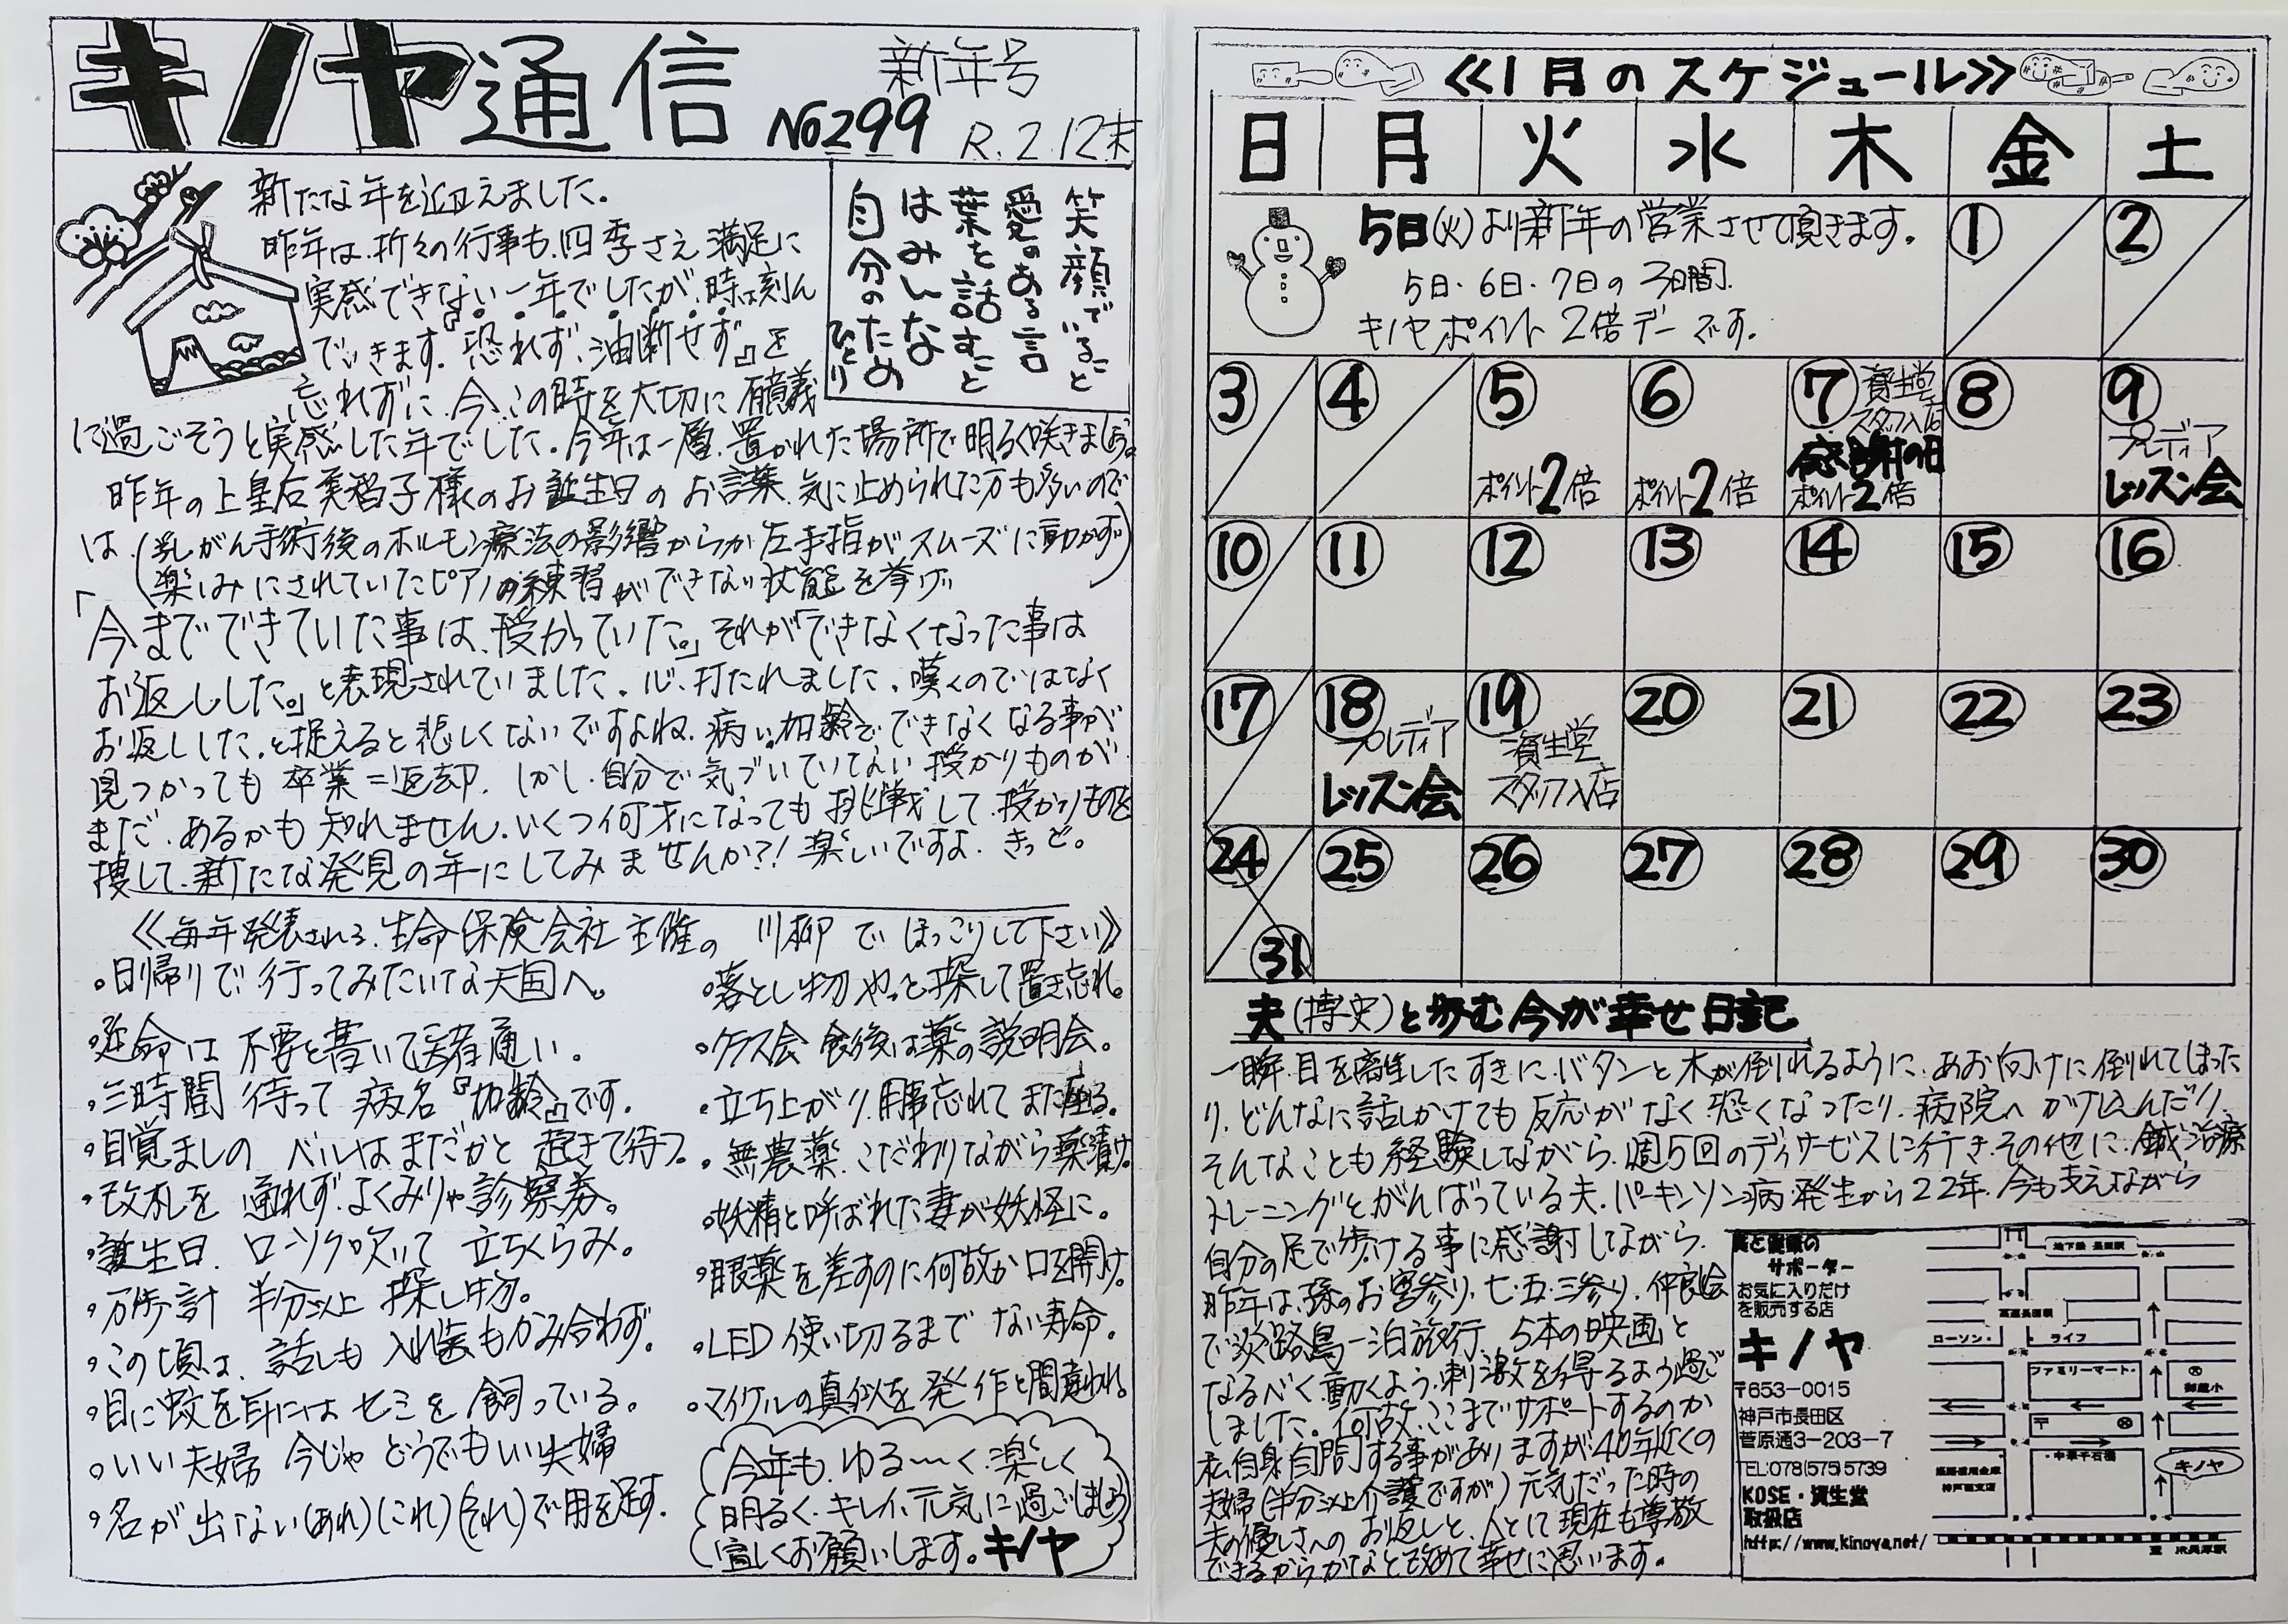 キノヤ通信
新年号
No299
R.2.12末
笑顔でいること
愛のある言
葉を話すこと
はみ〜んな
自分のため
ひとり
新たな年を迎えました。
昨年は、折々の行事も、四季さえ満足に
実感できない一年でしたが、時は刻ん
でいきます。『恐れず、油断せず』を
忘れずに、今、この時を大切に有意義
に過ごそうと実感した年でした。今年は一層、置かれた場所で明るく咲きましょう。
昨年の上皇后美智子様のお誕生日のお言葉、気に止められた方も多いので
は、(乳がん手術後のホルモン療法の影響からか左手指がスムーズに動かず
楽しみにされていたピアノの練習ができない状態を挙げ)
「今までできていた事は、授かっていた。」それが「できなくなった事は
お返しした。」と表現されていました。心、打たれました。嘆くのではなく
お返しした、と捉えると悲しくないですよね。病い、加齢でできなくなる事が
見つかっても卒業=返却。しかし、自分で気づいていない授かりものが
まだ、あるかも知れません。いくつ何才になっても挑戦して、授かりものを
捜して、新たな発見の年にしてみませんか?!楽しいですよ、きっと。
《毎年発表される、生命保険会社主催の 川柳で ほっこりして下さい》
・日帰りで 行ってみたいな天国へ。
・延命は 不要と書いて医者通い。
・三時間 待って 病名『加齢』です。
・目覚ましの ベルはまだかと 起きて待つ。
・改札を 通れず、よくみりゃ診察券。
・誕生日、ローソク吹いて 立ちくらみ。
・万歩計 半分以上 探し物。
・この頃は、話しも 入れ歯もかみ合わず。
・目に蚊を耳には セミを 飼っている。
・いい夫婦 今じゃ どうでもいい夫婦
・名が出ない(あれ)(これ)(それ)で用を足す。
・落とし物 やっと探して置き忘れ。
・クラス会 食後は薬の説明会。
・立ち上がり、用事忘れて また座る。
・無農薬、こだわりながら薬漬け。
・妖精と呼ばれた妻が妖怪に。
・眼薬を差すのに何故か口を開け。
・LED 使い切るまで ない寿命。
・マイケルの真似を 発作と間違われ。
今年も、ゆる〜〜く、楽しく
明るく、キレイ、元気に過ごしましょう
宜しくお願いします。キノヤ
≪1月のスケジュール≫
日 月 火 水 木 金 土
5日(火)より新年の営業させて頂きます。
5日・6日・7日の3日間。
キノヤポイント2倍デーです。
① ②
③ ④ ⑤ ⑥ ⑦ ⑧ ⑨
資生堂
スタッフ入店
感謝の日
ポイント2倍 ポイント2倍 ポイント2倍
プレディア
レッスン会
⑩ ⑪ ⑫ ⑬ ⑭ ⑮ ⑯
⑰ ⑱ ⑲ ⑳ ㉑ ㉒ ㉓
プレディア
レッスン会
資生堂
スタッフ入店
㉔ ㉕ ㉖ ㉗ ㉘ ㉙ ㉚
㉛
夫(博史)と歩む今が幸せ日記
一瞬、目を離したすきに、バタンと木が倒れるように、あお向けに倒れてしまった
り、どんなに話しかけても反応がなく恐くなったり、病院へかけ込んだり、
そんなことも経験しながら、週5回のディサービスに行き、その他に、鍼治療
トレーニングとがんばっている夫。パーキンソン病発生から22年、今も支えながら
自分の足で歩ける事に感謝しながら、
昨年は、孫のお宮参り、七・五・三参り、仲良会
で淡路島一泊旅行、5本の映画と
なるべく動くよう、刺激を得るよう過ご
しました。何故、ここまでサポートするのか
私自身自問する事がありますが、40年近くの
夫婦(半分以上介護ですが)元気だった時の
夫の優しさへのお返しと、人として現在も尊敬
できるからかなと改めて幸せに思います。
美と健康の
サポーター
お気に入りだけ
を販売する店
キノヤ
〒653-0015
神戸市長田区
菅原通3-203-7
TEL:078(575)5739
KOSE・資生堂
取扱店
http://www.kinoya.net/
地下鉄 長田駅
高速長田駅
ローソン・
・ライフ
ファミリーマート・
御蔵小
〒
・中華千石楼
神戸西支店
キノヤ
至 JR兵庫駅